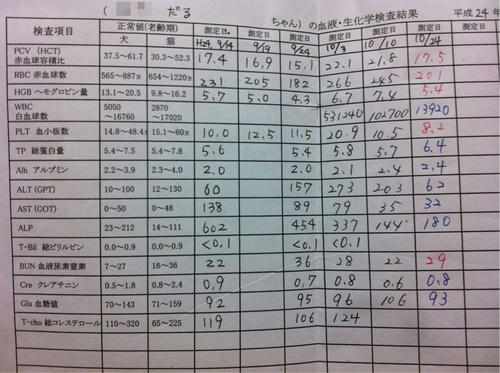 ( だる ちゃん) の血液・生化学検査結果 平成24年
検査項目 正常値(老齢期) 測定日 測定日 測定日 測定日 測定日 測定日
犬 猫 H24, 9/14 9/19 9/24 10/3 10/10 10/24
PCV (HCT) 赤血球容積比 37.5~61.7 30.3~52.3 17.4 16.9 15.1 22.1 21.8 17.5
RBC 赤血球数 565~887万 654~1220万 231 205 182 266 245 201
HGB ヘモグロビン量 13.1~20.5 9.8~16.2 5.7 5.0 4.3 6.7 7.4 5.4
WBC 白血球数 5050~16760 2870~17020 531240 102700 13920
PLT 血小板数 14.8~48.4万 15.1~60万 10.0 12.5 11.5 20.9 10.5 8.2
TP 総蛋白量 5.4~7.5 5.4~7.8 5.6 5.4 5.8 5.7 6.4
Alb アルブミン 2.2~3.9 2.3~4.0 2.0 2.0 2.1 2.4 2.4
ALT (GPT) 10~100 12~130 60 157 273 203 62
AST (GOT) 0~50 0~48 138 89 79 35 32
ALP 23~212 14~111 602 454 337 144 180
T-Bil 総ビリルビン 0.0~0.9 0.0~0.9 <0.1 <0.1 <0.1
BUN 血液尿素窒素 7~27 16~36 22 36 28 22 29
Cre クレアチニン 0.5~1.8 0.8~2.4 0.9 0.7 0.8 0.6 0.8
Glu 血糖値 70~143 71~159 92 95 96 106 93
T-cho 総コレステロール 110~320 65~225 119 106 124